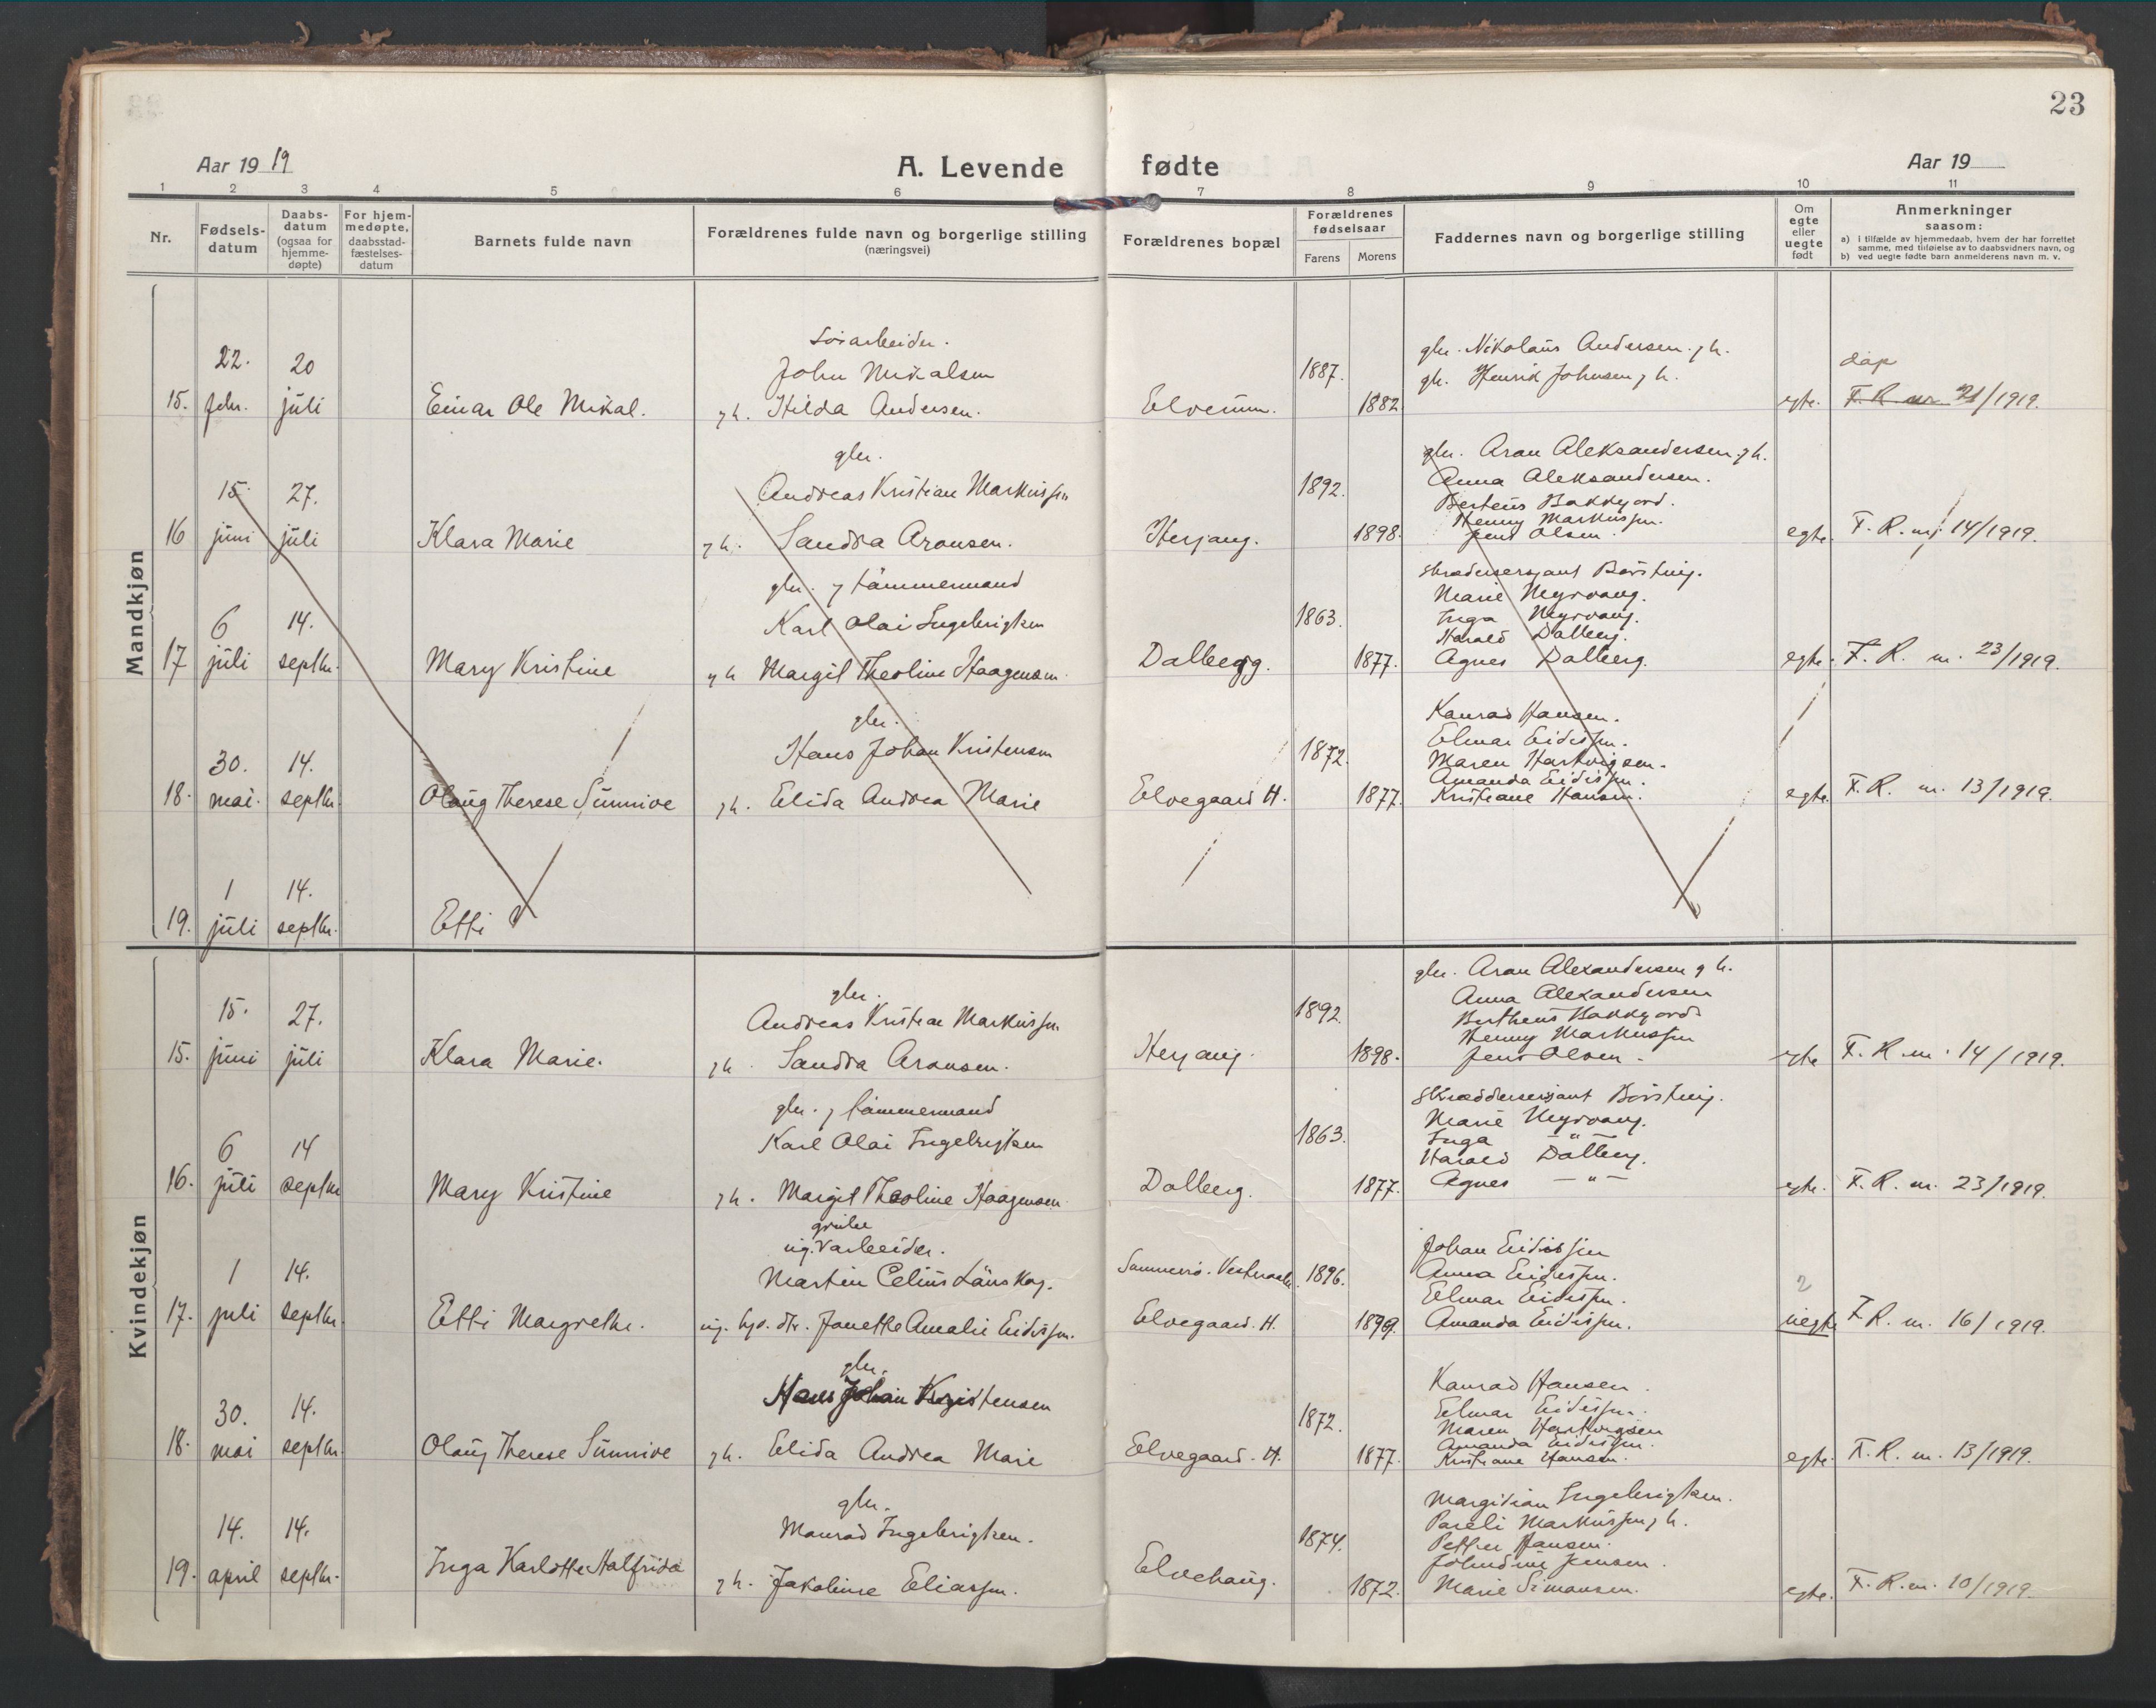 23
Aar 19 19
A. Levende fødte
Aar 19
1 2 3 4 5 6 7 8 9 10 11
Nr.
Fødsels-
datum
Daabs-
datum
(ogsaa for
hjemme-
døpte)
For hjem-
medøpte,
daabsstad-
fæstelses-
datum
Barnets fulde navn
Forældrenes fulde navn og borgerlige stilling
(næringsvei)
Forældrenes bopæl
Forældrenes
fødselsaar
Farens Morens
Faddernes navn og borgerlige stilling
Om
egte
eller
uegte
født
Anmerkninger
saasom:
a) i tilfælde av hjemmedaab, hvem der har forrettet
samme, med tilføielse av to daabsvidners navn, og
b) ved uegte fødte barn anmelderens navn m. v.
Mandkjøn
gbr. Nikolaus Andersen. g h.
22. 20 John Mikalsen 1887. gb. Henrik Johnsen g h. døp
15. febr. juli Einar Ole Mikal. g h. Hilda Andersen. Elvemm. 1882 egte. F. R. nr 21/1919.
gbr. gbr. Aron Aleksandersen g h.
15. 27. Andreas Kristian Markussen 1892. Anna Aleksandersen.
Berteus Bakkejord.
Henny Markussen.
16 juni juli Klara Marie g h. Sandra Aronsen. Herjang. 1898. Jens Olsen. egte. F. R. nr. 14/1919.
gbr. g tømmermand
Marie Nygvang.
6 14. Karl Olai Ingebrigtsen 1863. Inga Nygvang.
Harald Dalberg.
17 juli septbr. Mary Kristine g h Margit Theoline Haagensen. Dalberg. 1877. Agnes Dalberg. egte. F. R. nr. 23/1919.
gbr. Konrad Hansen.
30. 14. Hans Johan Kristensen 1872. Elmar Eidissen.
Maren Hartvigsen.
Amanda Eidissen.
18. mai. septbr. Olaug Therese Sunnive g h. Elida Andrea Marie Elvegaard H. 1877. Kristiane Hansen. egte. F. R. nr. 13/1919.
1 14.
19. juli septbr. Etti
Kvindekjøn
gbr. gbr. Aron Alexandersen g h.
15. 27. Andreas Kristian Markussen 1892. Anna Alexandersen
Bertheus Bakkejord
Henny Markussen
15. juni juli Klara Marie. g h. Sandra Aronsen. Herjang. 1898. Jens Olsen. egte F. R. nr. 14/1919.
gbr. g tømmermand
Marie Nygvang.
6 14 Karl Olai Ingebrigtsen 1863. Inga —"—
Harald Dalberg.
16. juli septbr Mary Kristine g h. Margit Theoline Haagensen. Dalberg. 1877. Agnes —"— egte. F. R. nr. 23/1919.
grube
ug. arbeider. Johan Eidissen
1 14. Martin Celius 1896. Anna Eidissen. 2
Elmar Eidissen.
17. juli septbr. Etti Margrethe. ug. Janette Amalie Eidissen. Elvegaard. H. 1899. Amanda Eidissen. uegte F. R. nr. 16/1919.
gbr. Konrad Hansen.
30. 14. Hans Johan Kristensen 1872. Elmar Eidissen.
Maren Hartvigsen
Amanda Eidissen.
18. mai septbr. Olaug Therese Sunnive g h. Elida Andrea Marie Elvegaard. H. 1877. Kristiane Hansen. egte. F. R. nr. 13/1919.
gbr. Margitian Ingebrigtsen.
14. 14. Monrad Ingebrigtsen. 1874. Pareli Markussen g h.
Petter Hansen.
Johndine Jensen.
19. april septbr. Inga Karlotte Halfrida g h. Jakobine Eliassen. Elvehaug. 1872. Marie Simonsen. egte. F. R. nr. 10/1919.